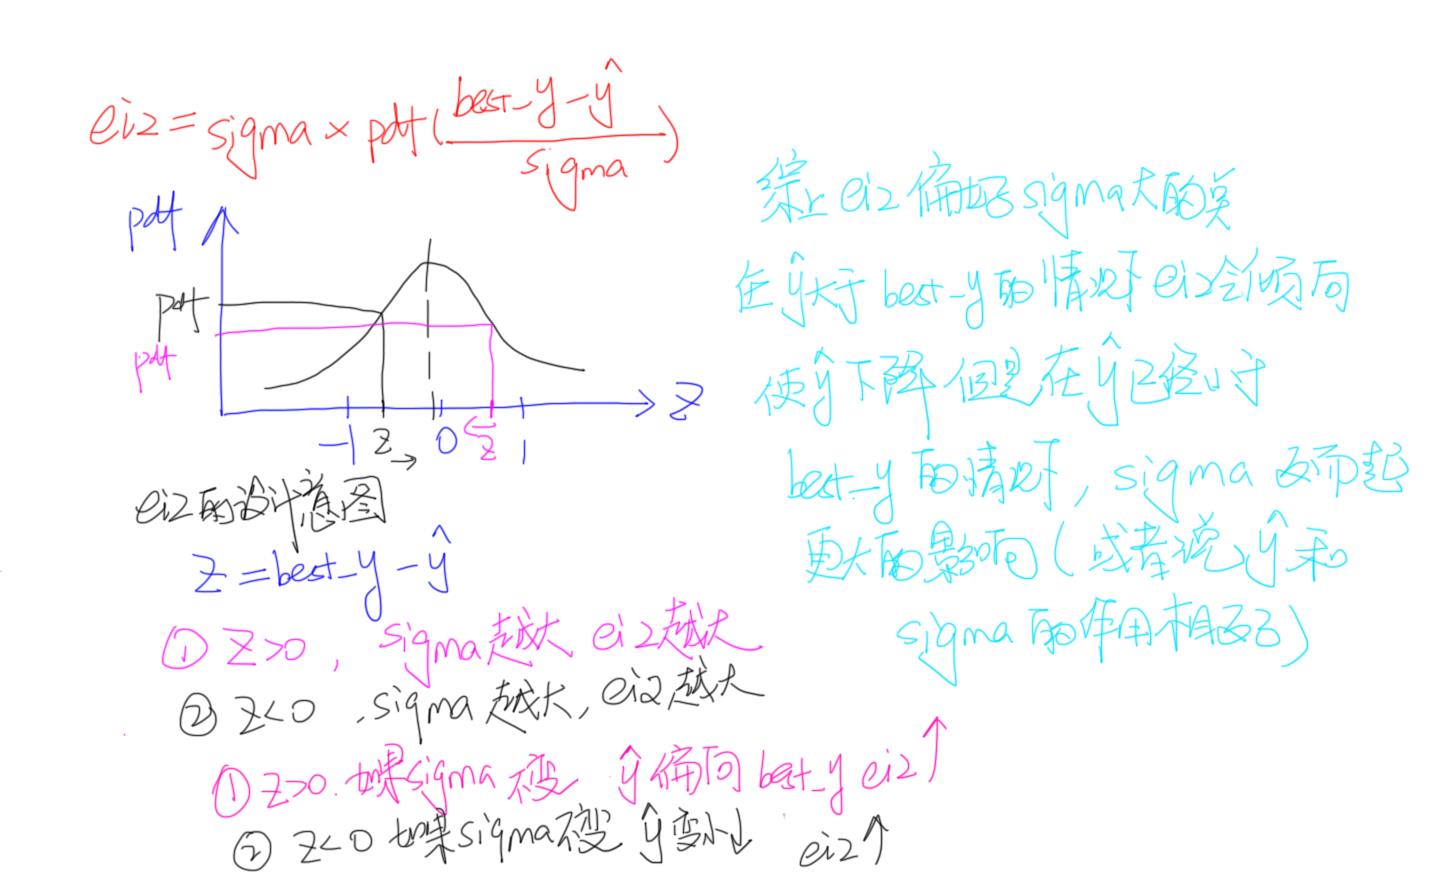 ei2 = sigma × pdf( (best_y - ŷ) / sigma )
pdf
pdf
pdf
-1 z → 0 ← z 1
Z
ei2的设计意图
Z = best_y - ŷ
① Z>0, sigma越大 ei2越大
② Z<0, sigma越大, ei2越大
① Z>0. 如果sigma不变 ŷ偏向best_y ei2↑
② Z<0 如果sigma不变 ŷ变小↓ ei2↑
综上ei2偏好sigma大的点
在ŷ大于best_y的情况下ei2会倾向
使ŷ下降 但是在ŷ已经小于
best_y的情况下, sigma反而起
更大的影响(或者说ŷ和
sigma的作用相反了)